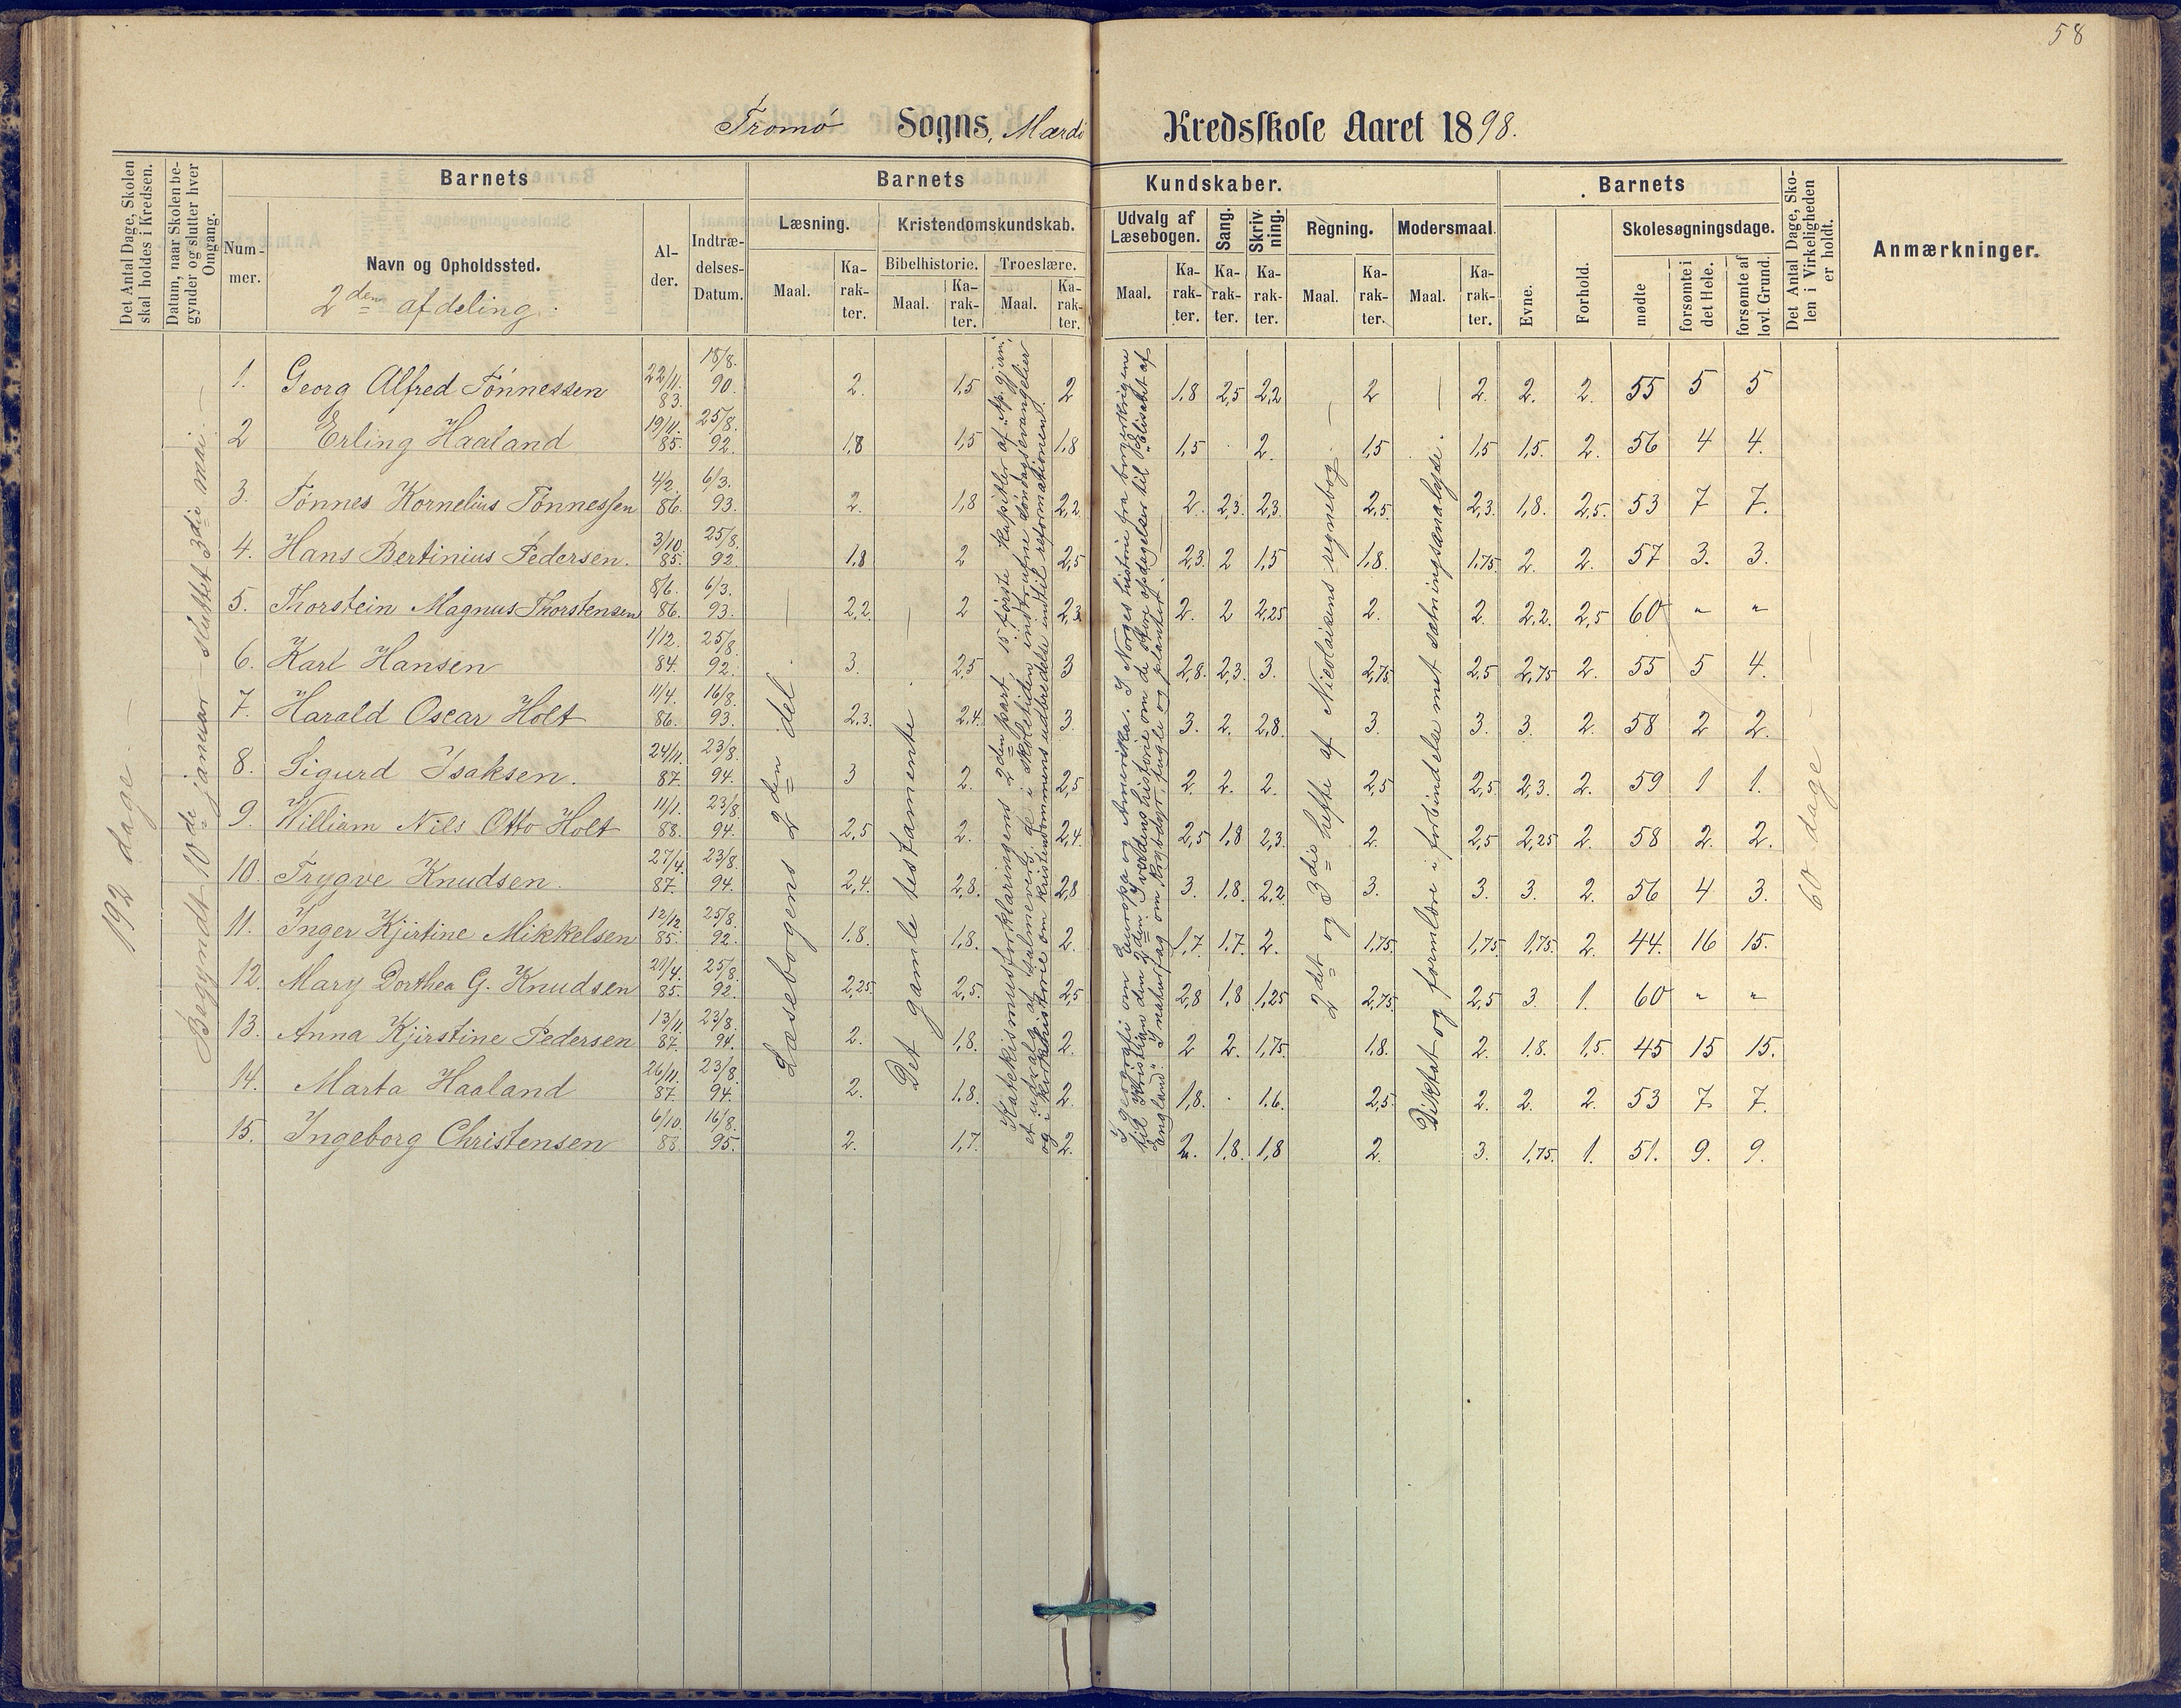 58
Tromø Sogns, Mærdø Kredsskole Aaret 1898.
Det Antal Dage, Skolen skal holdes i Kredsen.
Datum, naar Skolen begynder og slutter hver Omgang.
Barnets
Barnets
Kundskaber.
Barnets
Det Antal Dage, Skolen i Virkeligheden er holdt.
Anmærkninger.
Nummer.
Navn og Opholdssted.
Alder.
Indtrædelses-Datum.
Læsning.
Kristendomskundskab.
Udvalg af Læsebogen.
Sang.
Skrivning.
Regning.
Modersmaal.
Evne.
Forhold.
Skolesøgningsdage.
Bibelhistorie.
Troeslære.
Maal. Karakter. Maal. Karakter. Maal. Karakter. Maal. Karakter. Karakter. Karakter. Maal. Karakter. Maal. Karakter.
mødte
forsømte i det Hele.
forsømte af lovl. Grund.
2den afdeling.
192 dage —
Begyndt 10de januar — sluttet 3die mai. —
Læsebogens 2den del.
Det gamle testamente
Katekismusforklaringens 2den part. 15 første kapitler af Ap. gjern.
et udvalg af salmevers, de i skoletiden indtrufne søndagsevangelier
og i kirkehistorie om kristendommens udbredelse indtil reformationen.
I geografi om Europa og Amerika. I Norges historie fra borgerkrigene
til Kristian den 2den. I verdens historie om de store opdagelser til "Elisabet af
England". I naturfag om krybdyr, fugle og planter.
2det og 3die hefte af Nicolaisens regnebog. —
Diktat og formlære i forbindelse med sætningsanalyse. —
60 dage —
1. Georg Alfred Tønnessen 22/11. 83. 18/8. 90. 2. 1,5 2 1,8 2,5 2,2 2 2. 2. 2. 55 5 5
2 Erling Haaland 19/11. 85. 25/8. 92. 1,8 1,5 1,8 1,5 . 2. 1,5 1,5 1,5. 2. 56 4 4.
3. Tønnes Kornelius Tønnessen 4/2. 86. 6/3. 93. 2. 1,8 2,2 2. 2,3. 2,3. 2,5. 2,3. 1,8. 2,5. 53 7 7.
4. Hans Bertinius Pedersen. 3/10. 85. 25/8. 92. 1,8 2 2,5 2,3. 2 1,5 1,8. 1,75. 2. 2. 57 3. 3.
5. Thorstein Magnus Thorstensen 8/6. 86. 6/3. 93. 2,2. 2 2,3 2. 2 2,25 2. 2. 2,2. 2,5 60 " "
6. Karl Hansen 1/12. 84. 25/8. 92. 3. 2,5 3 2,8. 2,3. 3. 2,75. 2,5 2,75 2. 55 5 4.
7. Harald Oscar Holt 11/4. 86. 16/8. 93. 2,3. 2,4. 3. 3. 2. 2,8. 3. 3. 3. 2. 58 2 2.
8. Sigurd Isaksen. 24/11. 87. 23/8. 94. 3 2. 2,5 2. 2. 2. 2,5 2,5. 2,3. 2. 59 1 1.
9. William Nils Otto Holt 11/1. 88. 23/8. 94. 2,5 2. 2,4. 2,5 1,8 2,3. 2. 2,5 2,25 2. 58 2. 2.
10. Trygve Knudsen. 27/4. 87. 23/8. 94. 2,4. 2,8. 2,8 3. 1,8. 2,2. 3. 3. 3. 2. 56 4 3.
11. Inger Kjirtine Mikkelsen 12/12. 85. 25/8. 92. 1,8. 1,8. 2. 1,7 1,7. 2. 1,75. 1,75 1,75. 2. 44. 16 15.
12. Mary Dorthea G. Knudsen 29/4. 85. 25/8. 92. 2,25. 2,5. 2,5 2,8 1,8 1,25 2,75. 2,5 3. 1. 60 " "
13. Anna Kjirstine Pedersen 13/11. 87. 23/8. 94. 2. 1,8. 2. 2 2. 1,75. 1,8. 2. 1,8. 1,5. 45 15 15.
14. Marta Haaland 26/11. 87. 23/8. 94. 2. 1,8. 2. 1,8. . 1,6. 2,5. 2. 2. 2. 53 7. 7.
15. Ingeborg Christensen 6/10. 88. 16/8. 95. 2. 1,7. 2. 2. 1,8. 1,8 2. 3. 1,75. 1. 51. 9. 9.